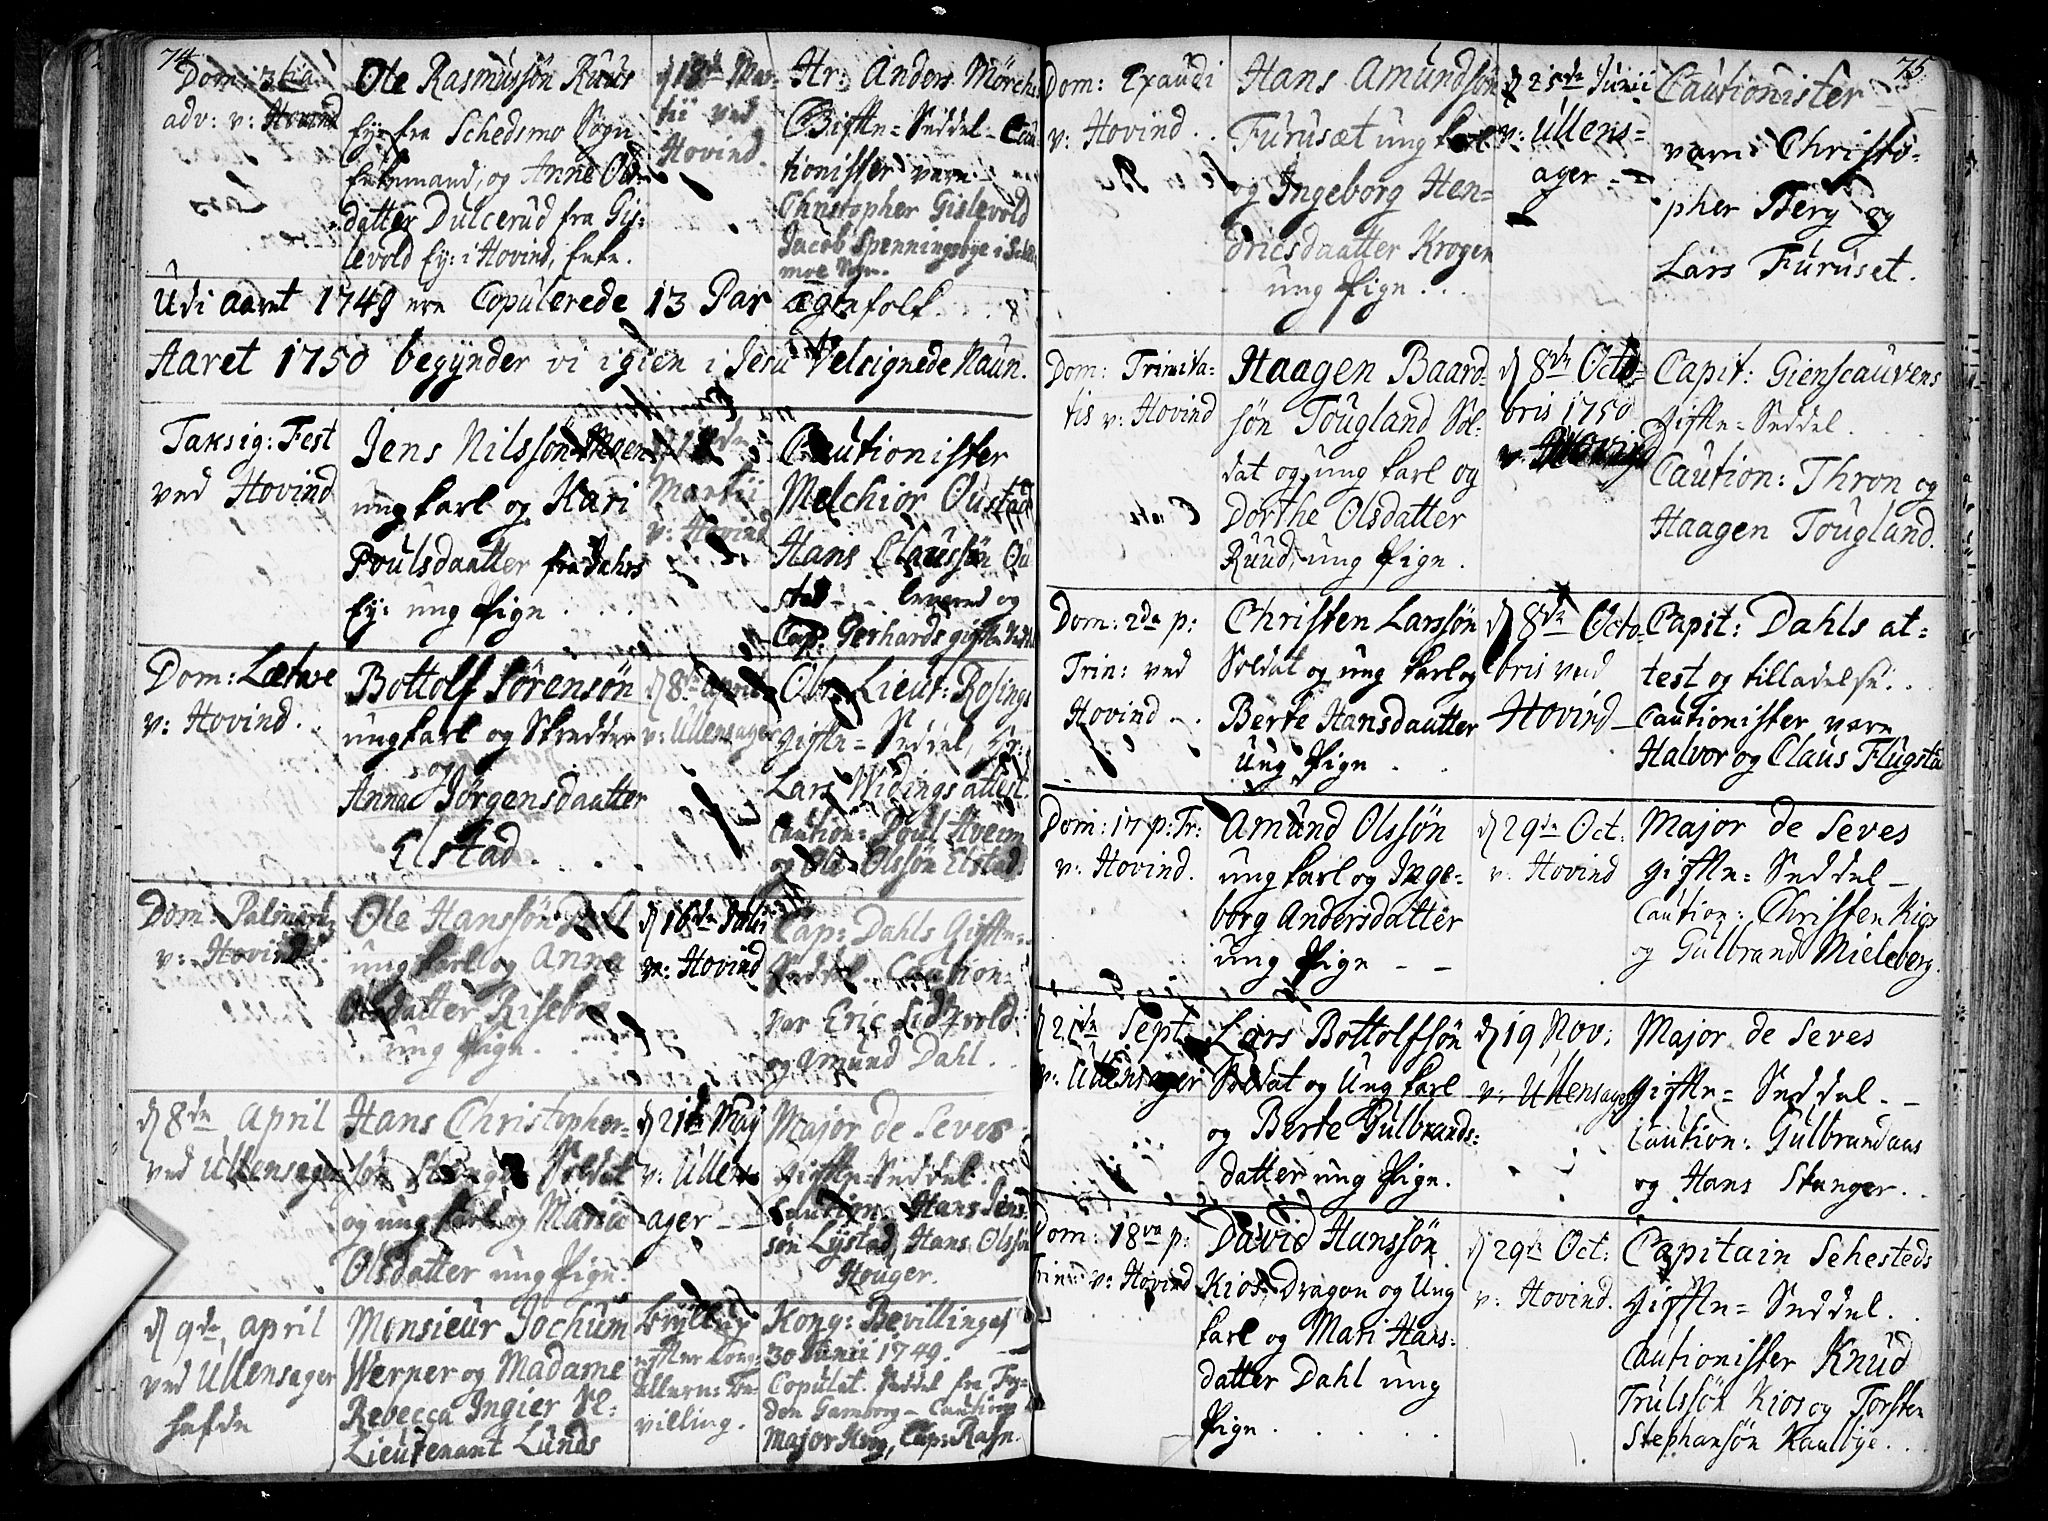 74.
Dom: 3tia
adv: v: Hovind
Ole Rasmussøn Ruus
Ey: fra Schedsmo Sogn
Enkemand, og Anne Ols-
datter Dulcerud fra Gis-
levold Ey: i Hovind, Enke.
d 18de Mar-
tii ved
Hovind.
Hr: Anders Mørchs
Gifte=Seddel - Cau-
tionister vare
Christopher Gislevold
Jacob Spenningsbye i
moe Sogn.
Udi aaret 1749 ere Copulerede 13 Par ægtefolk . . 8
Aaret 1750 begynder vi igien i Jesu Velsignede Naun.
Taksig: Fest
ved Hovind
Jens Nilssøn Moen
ung karl og Kari
Poulsdaatter fra Jahrs
Ey: ung Pige . . .
Martii
v: Hovind
Cautionister
Melchior Oustad
Hans Claussøn Ou
stad - - og
Cap: Gerhards gifte
Dom: Lætare
v: Hovind . .
Bottolf Sørensøn
ung karl og Skredder
Anna Jørgensdaatter
Elstad . . .
d 8de april
v: Ullensager
Ober Lieut: Rosings
gifte= Seddel, Hr:
Lars Widings attest.
Caution: Poul Hveem
og Ole Olssøn Elstad.
Dom: Palmarum
v: Hovind.
Ole Hanssøn Dahl
ung karl og Anna
Olsdatter Riseberg
ung Pige.
d 16de Julii
v: Hovind
Cap: Dahls Gifte=
Seddel. Caution:
var Eric Lidtzvold
og Amund Dahl.
d 8de April
ved Ullensager
Hans Christopher-
søn Stanger Soldat
og ung karl og Maria
Olsdatter ung Pige.
d 21de May
v: Ullens-
ager - -
Major de Seves
gifte=Seddel.
Caution: Hans Jens
søn Lystad, Hans Olssøn
Houger.
d 9de april
ved Ullensager
hafde
Monsieur Jochum
Werner og Madame
Rebecca Ingier Sl:
Lieutenant Lunds
Bryllup
efter Kong:
Allern: Be-
villing.
Kong: Bevillinges
30 Junii 1749.
Copulat. Seddel fra
Gamborg - Caution
Major Hog, Cap: Rasn.
75.
Dom: Exaudi
v: Hovind . .
Hans Amundsøn
Furusæt ung karl
og Ingeborg Hen=
dricsdaatter Krogen
ung Pige . .
d 25de Junii
v: Ullens=
ager - -
Cautionister
vare: Christo-
pher Berg og
Lars Furuset.
Dom: Trinita-
tis v: Hovind
Haagen Baard-
søn Tougland Sol-
dat og ung karl og
Dorthe Olsdatter
Ruud, ung Pige.
d 8de Octo-
bris 1750
v: Hovind
Capit: Gienscauvens
Gifte= Seddel. . .
Caution: Thron og
Haagen Tougland.
Dom: 2da p:
Trin: ved
Hovind - .
Christen Larssøn
Soldat og ung karl og
Berte Hansdaatter
Ung Pige . .
d 8de Octo-
bris ved
Hovind -
Capit: Dahls at=
test og tilladelse. . .
Cautionister vare
Halvor og Claus Flugsta
Dom: 17 p: Tr:
v: Hovind.
Amund Olssøn
ung karl og Inge-
borg Andersdatter
ung Pige - -
d 29de Oct:
v: Hovind
Major de Seves
gifte= Seddel -
Caution: Christen Kios
og Gulbrand Mieleberg.
d 21de Sept.
v: Ullensager
Lars Bottolfsøn
Soldat og Ung karl
og Berte Gulbrands=
datter ung Pige.
d 19 Nov:
v: Ullensager
Major de Seves
gifte= Seddel. -
Caution: Gulbrand aas
og Hans Stanger. .
Dom: 18va p:
Trin: v: Hovind
David Hanssøn
Kios, Dragon og Ung
karl og Mari Hans=
datter Dahl ung
Pige . . . . .
d 29de Oct:
v: Hovind.
Capitain Sehesteds
Gifte= Seddel. .
Cautionister Knud
Trulssøn Kios og Torsten
Stephansøn Kaulbye. . .